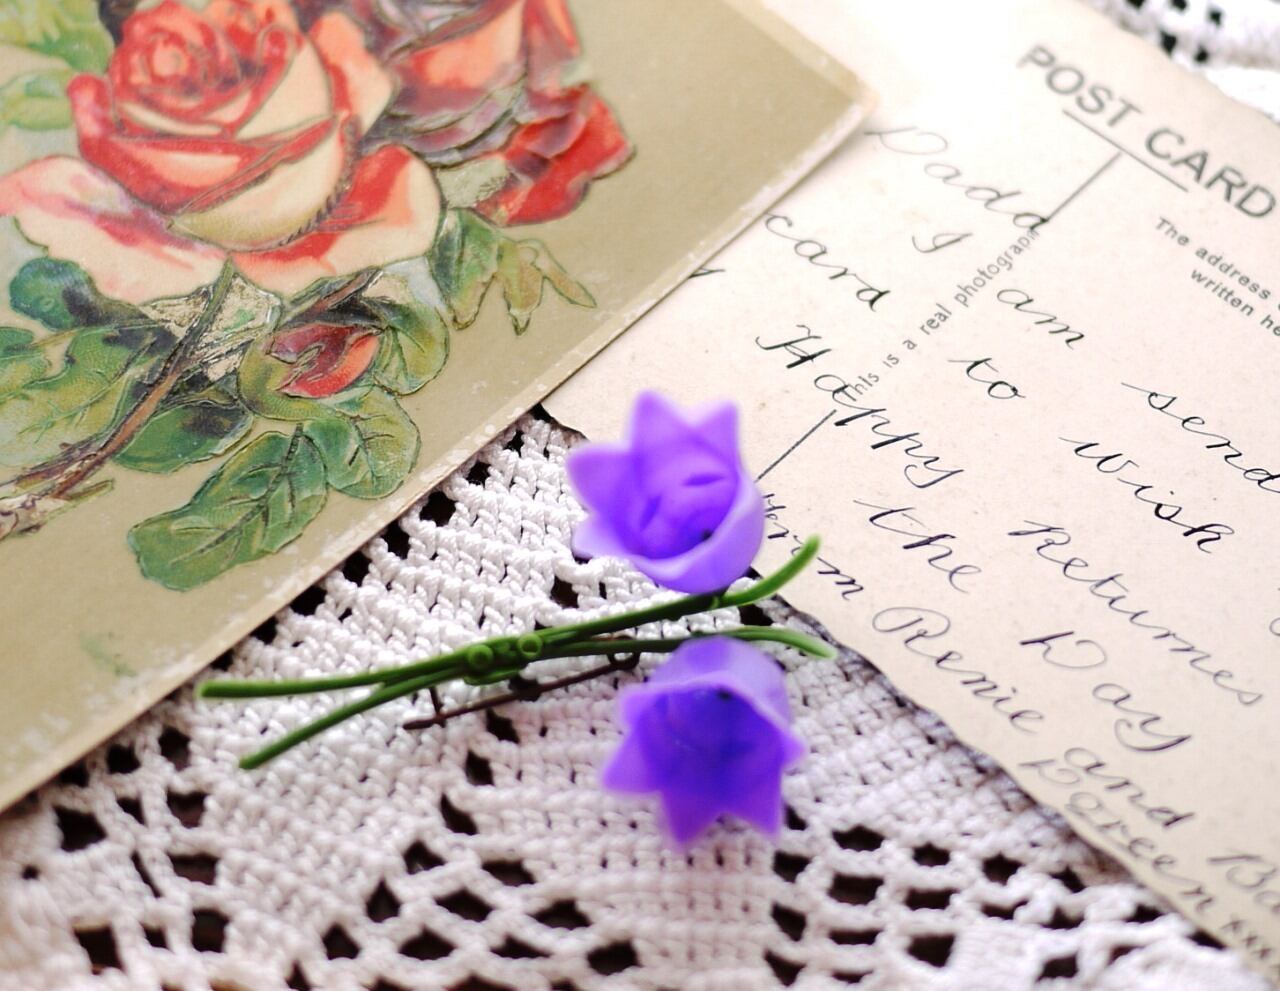 POST CARD
The address
written he
This is a real photograph
Dada
I am send
card to wish
Happy Returnes
the Day
from Renie and
Doreen xxx